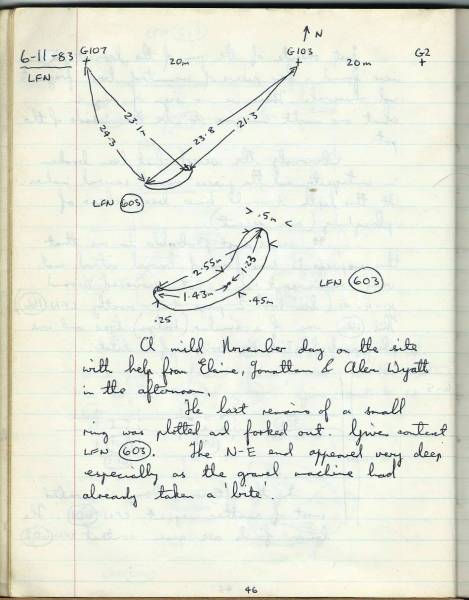 ↑ N
6-11-83
LFN
G107
20m
G103
20m
G2
24.3
23.1m
23.8
21.3
LFN 603
.5m
2.55m
1.23
1.43m
.45m
.25
LFN 603
A mild November day on the site
with help from Elaine, Jonathan & Alex Wyatt
in the afternoon.
The last remains of a small
ring was plotted and forked out. Given context
LFN 603. The N-E end appeared very deep
especially as the gravel machine had
already taken a 'bite'.
46